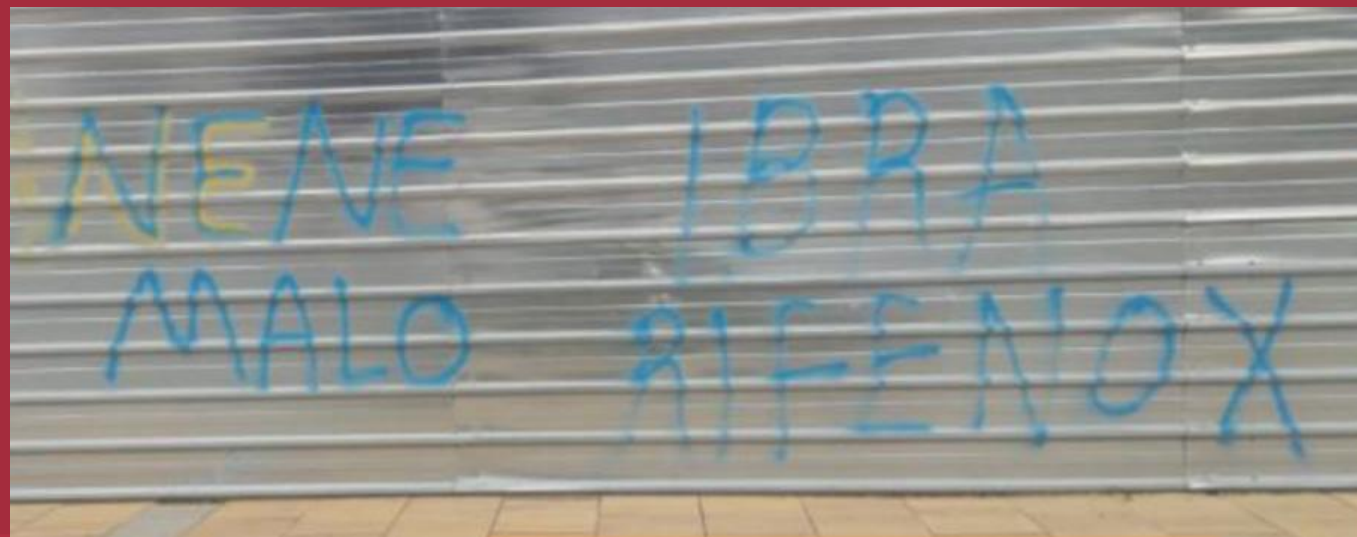 NENE
MALO
IBRA
RIFENOX